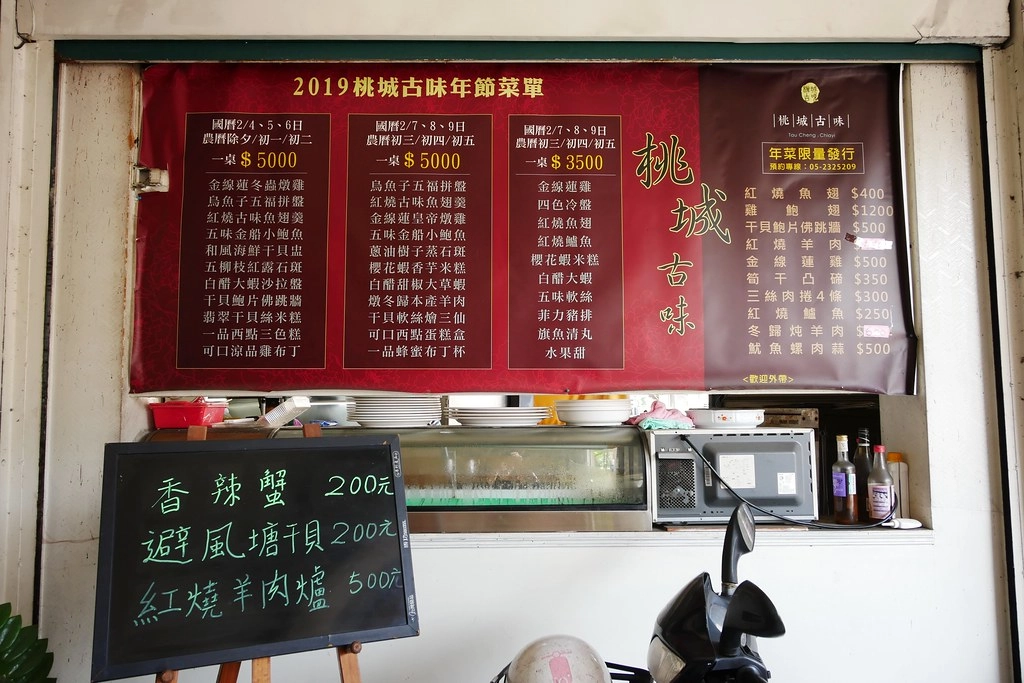 2019桃城古味年節菜單
國曆2/4、5、6日
農曆除夕/初一/初二
一桌 $5000
金線蓮冬蟲燉雞
烏魚子五福拼盤
紅燒古味魚翅羹
五味金船小鮑魚
和風海鮮干貝盅
五柳枝紅露石斑
白醋大蝦沙拉盤
干貝鮑片佛跳牆
翡翠干貝絲米糕
一品西點三色糕
可口涼品雞布丁
國曆2/7、8、9日
農曆初三/初四/初五
一桌 $5000
烏魚子五福拼盤
紅燒古味魚翅羹
金線蓮皇帝燉雞
五味金船小鮑魚
蔥油樹子蒸石斑
櫻花蝦香芋米糕
白醋甜椒大草蝦
燉冬歸本產羊肉
干貝軟絲燴三仙
可口西點蛋糕盒
一品蜂蜜布丁杯
國曆2/7、8、9日
農曆初三/初四/初五
一桌 $3500
金線蓮雞
四色冷盤
紅燒魚翅
紅燒鱸魚
櫻花蝦米糕
白醋大蝦
五味軟絲
菲力豬排
旗魚清丸
水果甜
桃城古味
桃城古味
Tau Cheng .Chiayi
年菜限量發行
預約專線：05-2325209
紅燒魚翅 $400
雞鮑翅 $1200
干貝鮑片佛跳牆 $500
紅燒羊肉
金線蓮雞 $500
筍干凸碲 $350
三絲肉捲4條 $300
紅燒鱸魚 $250
冬歸炖羊肉
魷魚螺肉蒜 $500
<歡迎外帶>
香辣蟹 200元
避風塘干貝 200元
紅燒羊肉爐 500元